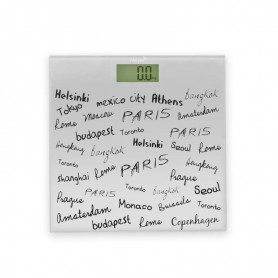 0.0
Helsinki mexico city Athens Bangkok
Tokyo Moscow PARIS Hongkong
Rome budapest Toronto Prague Rome
Hongkong Rome PARIS Seoul Hongkong
Toronto Bangkok Toronto
shanghai Rome PARIS Rome
Prague PARIS Bangkok Seoul
Amsterdam Monaco Brussels Prague
budapest Rome Copenhagen